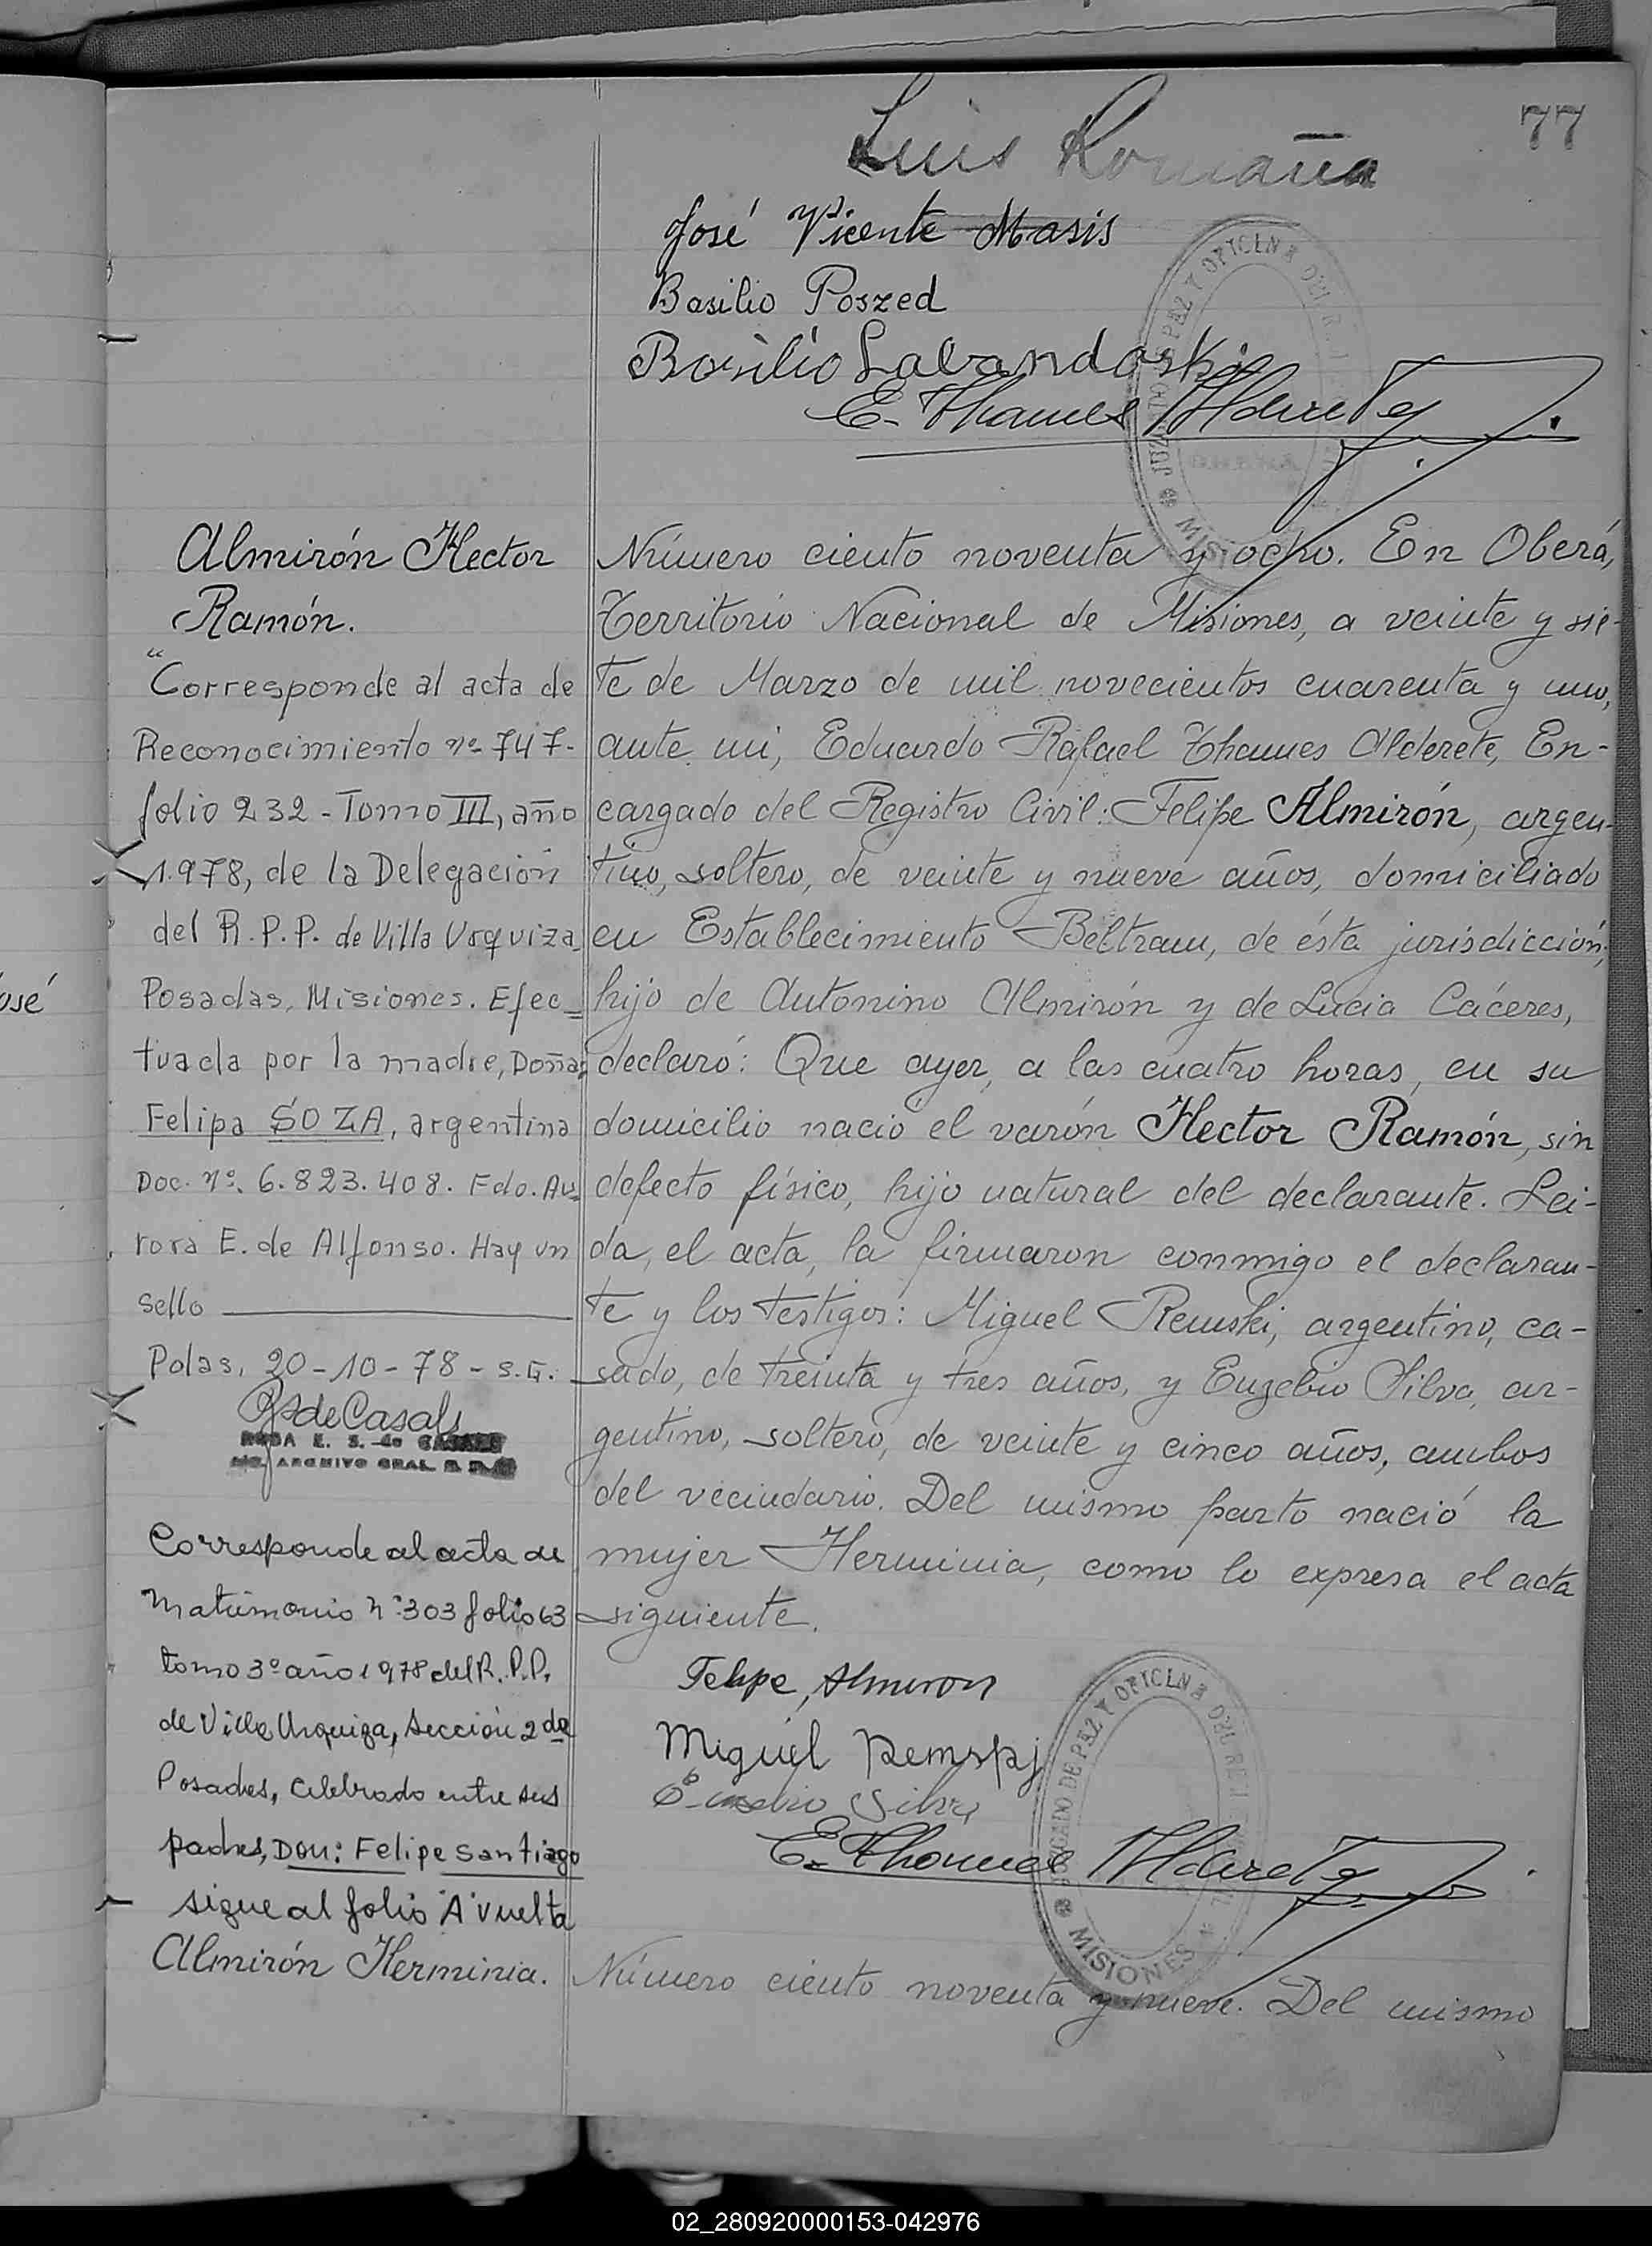 77
Luis Romaña
José Vicente Masis
Basilio Poszed
Basilio Lavandoski
E. Thames Alderete
JUZGADO DE PAZ Y OFICINA DEL R.
MISIONES
Almirón Hector
Ramón.
"Corresponde al acta de
Reconocimiento nº 747-
folio 232 - Tomo III, año
1.978, de la Delegación
del R.P.P. de Villa Urquiza
Posadas, Misiones. Efec=
tuada por la madre, Doña:
Felipa SOZA, argentina
Doc. Nº. 6.823.408. Fdo. Au=
rora E. de Alfonso. Hay un
sello
Pdas, 20-10-78 - S.G.
de Casals
ROSA E. S. de CASALS
ARCHIVO GRAL.
Corresponde al acta de
Matrimonio nº 303 folio 63
tomo 3º año 1978 del R.P.P.
de Villa Urquiza, sección 2da
Posadas, celebrado entre sus
padres, Don: Felipe Santiago
sigue al folio "A" vuelta
Número ciento noventa y ocho. En Oberá,
Territorio Nacional de Misiones, a veinte y sie-
te de Marzo de mil novecientos cuarenta y uno,
ante mi, Eduardo Rafael Thames Alderete, En-
cargado del Registro Civil: Felipe Almirón, argen-
tino, soltero, de veinte y nueve años, domiciliado
en Establecimiento Beltram, de ésta jurisdicción,
hijo de Antonino Almirón y de Lucia Cáceres,
declaró: Que ayer, a las cuatro horas, en su
domicilio nació el varón Hector Ramón, sin
defecto físico, hijo natural del declarante. Lei-
da, el acta, la firmaron conmigo el declaran-
te y los testigos: Miguel Remski, argentino, ca-
sado, de treinta y tres años, y Eugebio Silva, ar-
gentino, soltero, de veinte y cinco años, ambos
del vecindario. Del mismo parto nació la
mujer Herminia, como lo expresa el acta
siguiente.
Felipe, Almiron
Miguel Remski
Silva
E. Thames Alderete
JUZGADO DE PAZ Y OFICINA DEL
MISIONES
Almirón Herminia.
Número ciento noventa y nueve. Del mismo
osé
02_280920000153-042976